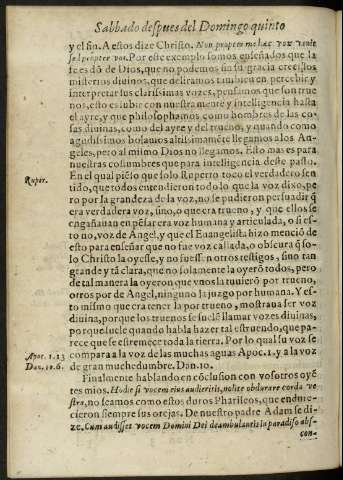 Sabbado despues del Domingo quinto
y el fin. A estos dize Christo. Non propter me haec vox venit
sed propter vos. Por este exemplo somos enseñados que la
fee es dõ de Dios, que no podemos sin su gracia creer los
misterios diuinos, que deliramos tambien en percebir y
interpretar sus clarissimas vozes, pensamos que son true
nos, esto es subir con nuestra mente y intelligencia hasta
el ayre, y que philosophamos como hombres de las co-
sas diuinas, como del ayre y del trueno, y quando como
agudissimos bolamos altissimamẽte llegamos a los An-
geles, pero al mismo Dios no llegamos. Esto mas es para
nuestras costumbres que para intelligencia deste passo.
Ruper.
En el qual piẽso que solo Ruperto toco el verdadero sen
tido, que todos entendieron todo lo que la voz dixo, pe
ro por la grandeza de la voz, no se pudieron persuadir q̃
era verdadera voz, sino, o que era trueno, y que ellos se
engañauan en pẽsar era voz humana y articulada, o si es-
to no, voz de Angel, y que el Euangelista hizo menciõ de
esto para enseñar que no fue voz callada, o obscura q̃ so-
lo Christo la oyesse, y no fuesse n otros testigos, sino tan
grande y tã clara, que no solamente la oyerõ todos, pero
de tal manera la oyeron que vnos la tuuierõ por trueno,
otros por de Angel, ninguno la juzgo por humana. Y es-
to mismo que era tener la por trueno, mostraua ser voz
diuina, porque los truenos se suelẽ llamar vozes diuinas,
porque suele quando habla hazer tal estruendo, que pa-
rece que se estremece toda la tierra. Por lo qual su voz se
Apoc. 1.13
compara a la voz de las muchas aguas Apoc. 1. y a la voz
Dan. 10.6.
de gran muchedumbre. Dan. 10.
Finalmente hablando en cõclusion con vosotros oyẽ
tes mios. Hodie si vocem eius audieritis, nolite obdurare corda ve
stra, no seamos como estos duros Phariseos, que endure-
cieron siempre sus orejas. De nuestro padre Adam se di-
ze. Cum audisset vocem Domini Dei deambulantis in paradiso abs-
con-